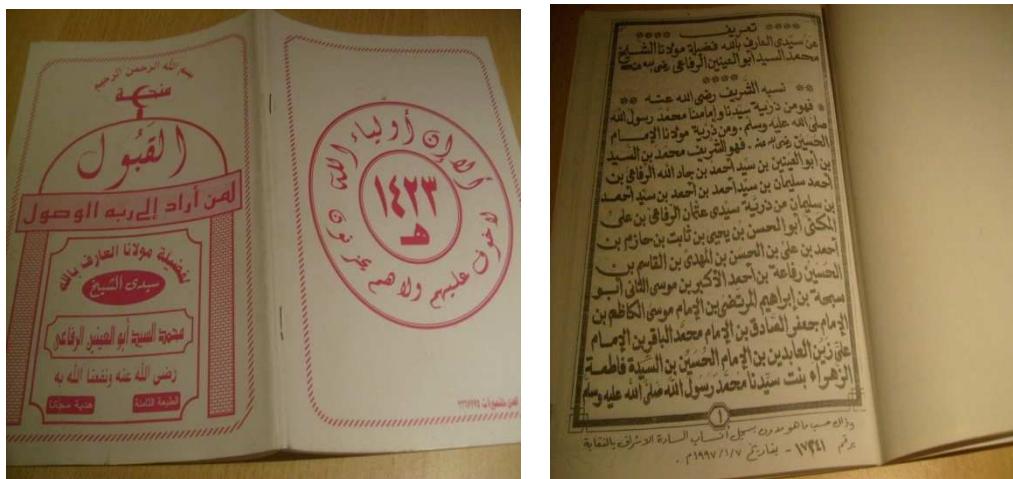 بسم الله الرحمن الرحيم
منحة
القبول
لمن أراد إلى ربه الوصول
لفضيلة مولانا العارف بالله
سيدى الشيخ
محمد السيد أبو العينين الرفاعى
رضى الله عنه ونفعنا الله به
الطبعة الثامنة
هدية مجانا
ألا إن أولياء الله
لا خوف عليهم ولا هم يحزنون
١٤٢٣
هـ
تعريف
عن سيدى العارف بالله فضيلة مولانا الشيخ
محمد السيد أبو العينين الرفاعى رضى الله عنه
نسبه الشريف رضى الله عنه
فهو من ذرية سيدنا وإمامنا محمد رسول الله
صلى الله عليه وسلم . ومن ذرية مولانا الإمام
الحسين رضى الله عنه . فهو الشريف محمد بن السيد
بن أبو العينين بن سيد أحمد بن جاد الله الرفاعى بن
أحمد سليمان بن سيد أحمد بن أحمد بن سيد أحمد
بن سليمان من ذرية سيدى عثمان الرفاعى بن على
المكنى أبو الحسن بن يحيى بن ثابت بن حازم بن
أحمد بن على بن الحسن بن المهدى بن القاسم بن
الحسين رفاعة بن أحمد الأكبر بن موسى الثانى أبو
سبحة بن إبراهيم المرتضى بن الإمام موسى الكاظم بن
الإمام جعفر الصادق بن الإمام محمد الباقر بن الإمام
على زين العابدين بن الإمام الحسين بن السيدة فاطمة
الزهراء بنت سيدنا محمد رسول الله صلى الله عليه وسلم
١
وذلك حسب ما هو مدون بسجل أنساب السادة الاشراف بالنقابة
برقم ١٧٣٤١ - بتاريخ ١٩٩٧/١/٧م .